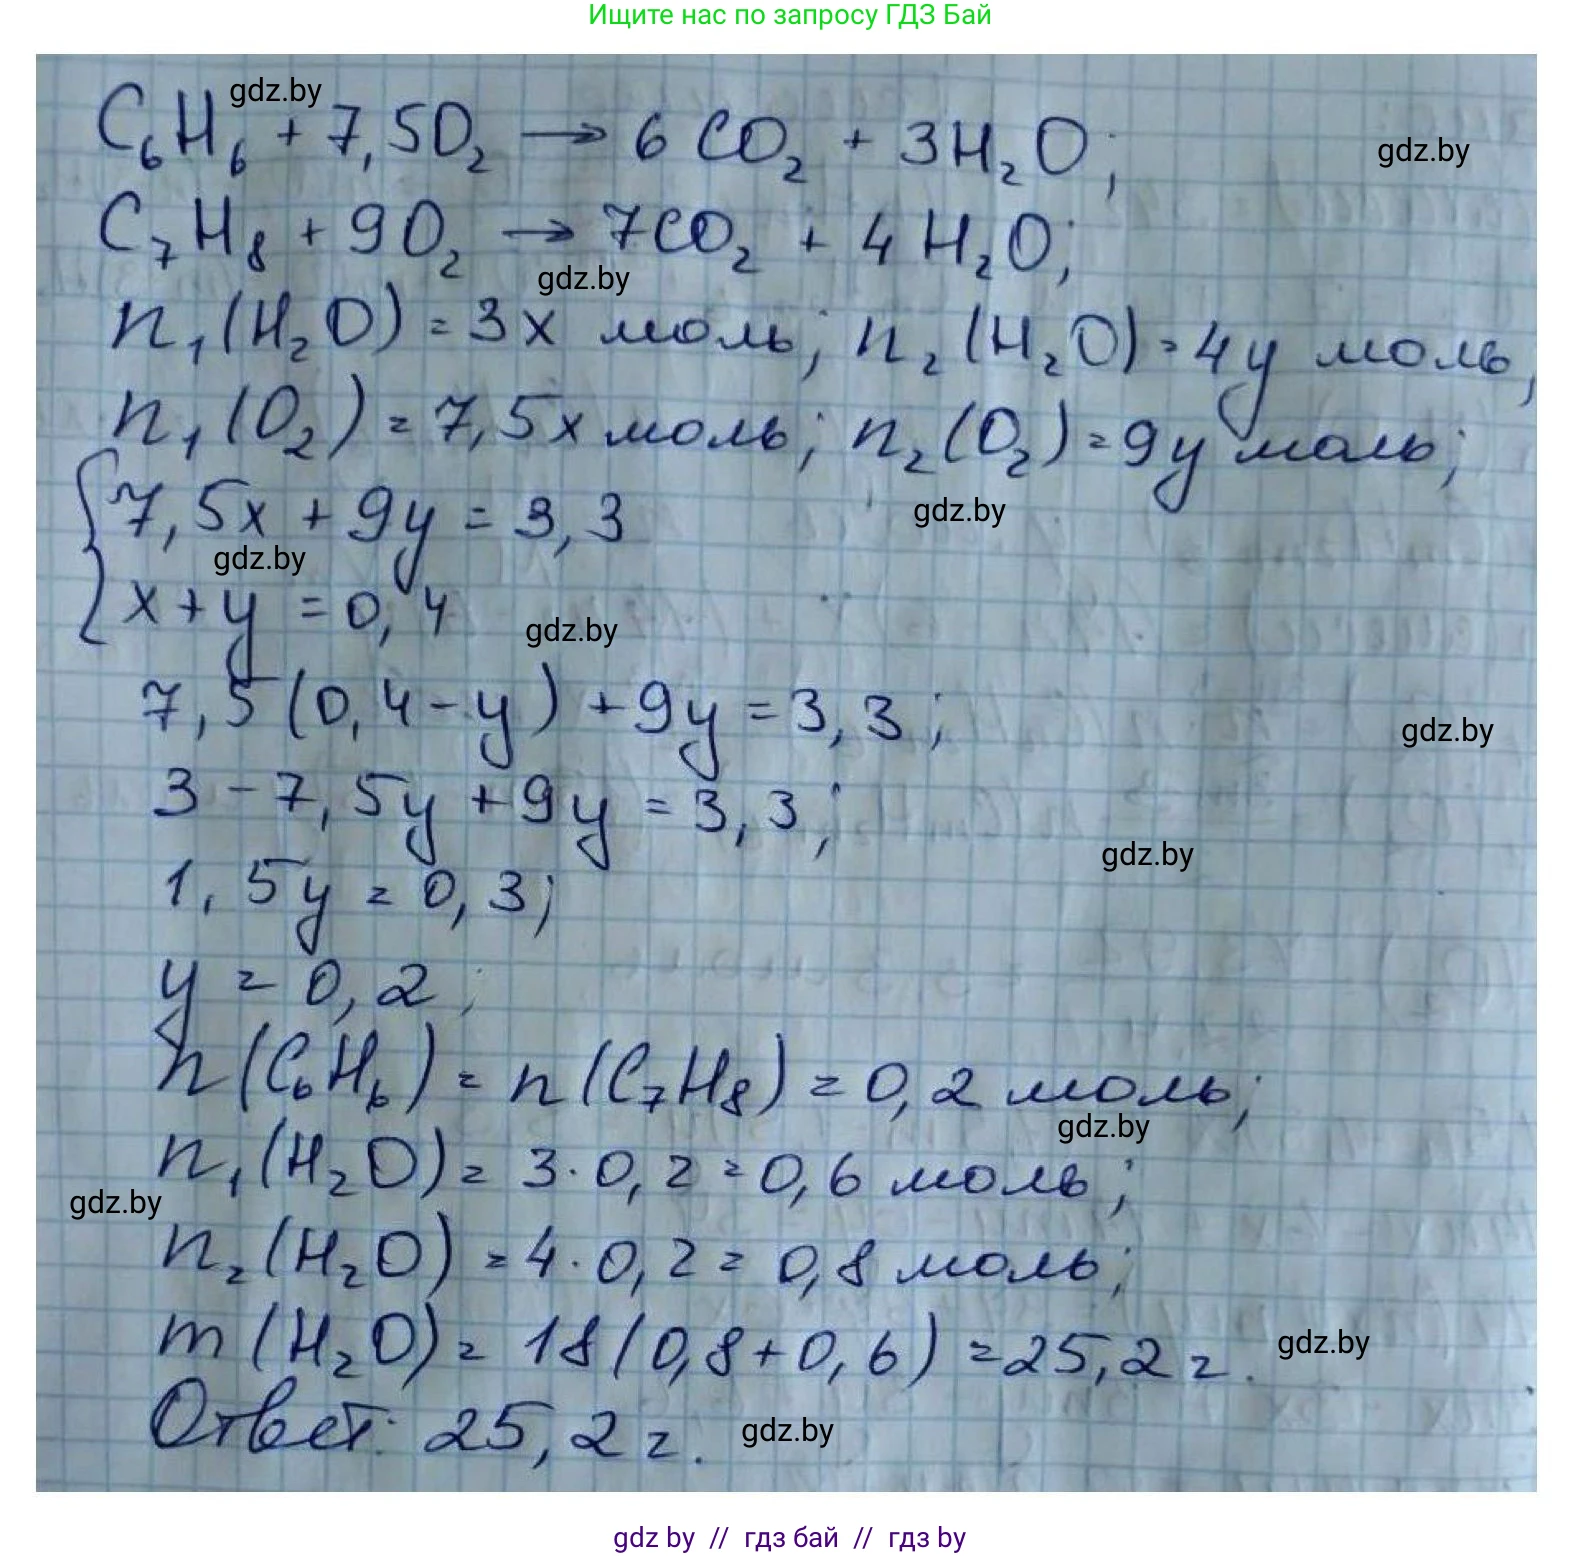 Ищите нас по запросу ГДЗ Бай
gdz.by
C₆H₆ + 7,5O₂ → 6 CO₂ + 3H₂O;
gdz.by
C₇H₈ + 9O₂ → 7CO₂ + 4H₂O;
gdz.by
n₁(H₂O) = 3x моль; n₂(H₂O) = 4y моль,
n₁(O₂) = 7,5x моль; n₂(O₂) = 9y моль;
{7,5x + 9y = 3,3
gdz.by
gdz.by
x + y = 0,4
gdz.by
7,5(0,4 - y) + 9y = 3,3;
gdz.by
3 - 7,5y + 9y = 3,3;
gdz.by
1,5y = 0,3;
y = 0,2;
n(C₆H₆) = n(C₇H₈) = 0,2 моль;
gdz.by
n₁(H₂O) = 3·0,2 = 0,6 моль;
gdz.by
n₂(H₂O) = 4·0,2 = 0,8 моль;
m(H₂O) = 18(0,8 + 0,6) = 25,2 г.
gdz.by
Ответ: 25,2 г.
gdz.by
gdz by // гдз бай // гдз by